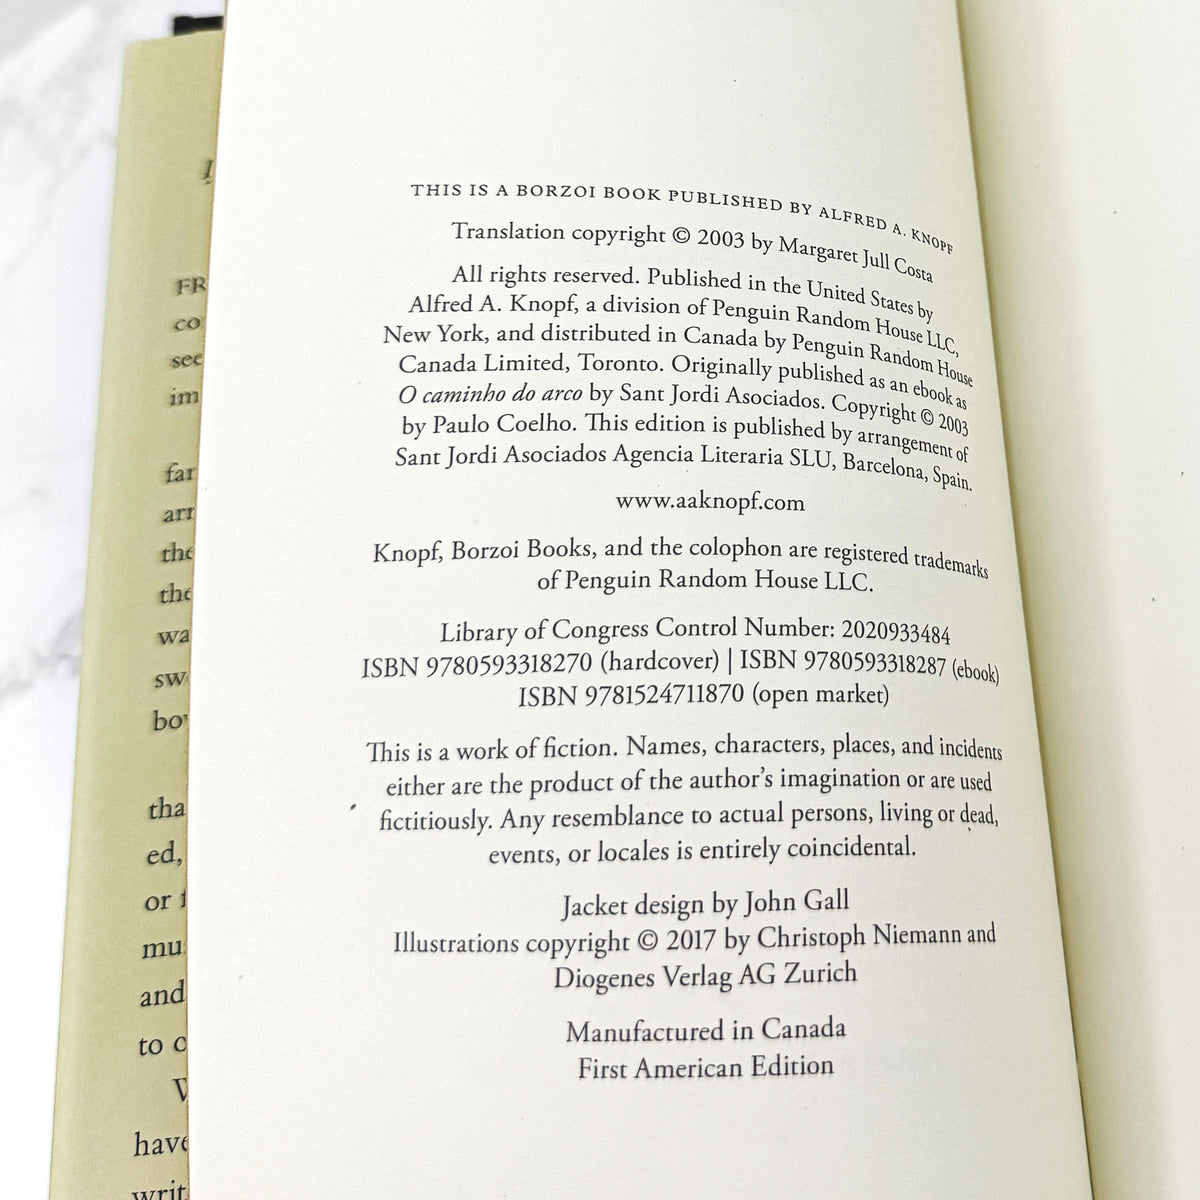 THIS IS A BORZOI BOOK PUBLISHED BY ALFRED A. KNOPF
Translation copyright © 2003 by Margaret Jull Costa
All rights reserved. Published in the United States by
Alfred A. Knopf, a division of Penguin Random House LLC,
New York, and distributed in Canada by Penguin Random House
Canada Limited, Toronto. Originally published as an ebook as
O caminho do arco by Sant Jordi Asociados. Copyright © 2003
by Paulo Coelho. This edition is published by arrangement of
Sant Jordi Asociados Agencia Literaria SLU, Barcelona, Spain.
www.aaknopf.com
Knopf, Borzoi Books, and the colophon are registered trademarks
of Penguin Random House LLC.
Library of Congress Control Number: 2020933484
ISBN 9780593318270 (hardcover) | ISBN 9780593318287 (ebook)
ISBN 9781524711870 (open market)
This is a work of fiction. Names, characters, places, and incidents
either are the product of the author's imagination or are used
fictitiously. Any resemblance to actual persons, living or dead,
events, or locales is entirely coincidental.
Jacket design by John Gall
Illustrations copyright © 2017 by Christoph Niemann and
Diogenes Verlag AG Zurich
Manufactured in Canada
First American Edition